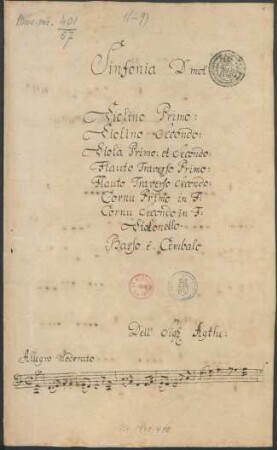 Mus. ms. 401
67
Sinfonia D mol
Violino Primo:
Violino Secondo:
Viola Primo, et Secondo
Flauto Traverso Primo:
Flauto Traverso Secondo:
Cornu Primo in F:
Cornu Secondo in F:
Violonello:
Basso è Cembalo
Dell Sigr Agthe:
Allegro Moderato